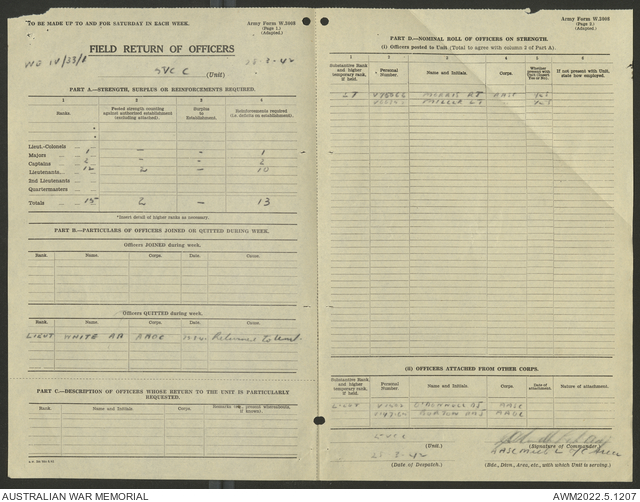 TO BE MADE UP TO AND FOR SATURDAY IN EACH WEEK.
Army Form W.3008
(Page 1.)
(Adapted.)
FIELD RETURN OF OFFICERS
(Unit)
PART A.—STRENGTH, SURPLUS OR REINFORCEMENTS REQUIRED.
1 2 3 4
Ranks. Posted strength counting against authorised establishment (excluding attached). Surplus to Establishment. Reinforcements required (i.e. deficits on establishment).
Lieut.-Colonels
Majors 1 — — 1
Captains 2 — — 2
Lieutenants 12 2 — 10
2nd Lieutenants
Quartermasters
Totals 15 2 — 13
*Insert detail of higher ranks as necessary.
PART B.—PARTICULARS OF OFFICERS JOINED OR QUITTED DURING WEEK.
Officers JOINED during week.
Rank. Name. Corps. Date. Cause.
Officers QUITTED during week.
Rank. Name. Corps. Date. Cause.
LIEUT WHITE AA AAOC Returned to Unit.
PART C.—DESCRIPTION OF OFFICERS WHOSE RETURN TO THE UNIT IS PARTICULARLY REQUESTED.
Rank. Name. Corps. Remarks (e.g., present whereabouts, if known).
Army Form W.3008
(Page 2.)
(Adapted.)
PART D.—NOMINAL ROLL OF OFFICERS ON STRENGTH.
(i) Officers posted to Unit (Total to agree with column 2 of Part A).
1 2 3 4 5 6
Substantive Rank and higher temporary rank, if held. Personal Number. Name and Initials. Corps. Whether present with Unit (Insert Yes or No). If not present with Unit, state how employed.
LT MORRIS RT YES
YES
(ii) OFFICERS ATTACHED FROM OTHER CORPS.
Substantive Rank and higher temporary rank, if held. Personal Number Name and Initials. Corps. Date of attachment. Nature of attachment.
LIEUT
(Unit.)
(Signature of Commander.)
(Date of Despatch.)
(Bde., Divn., Area, etc., with which Unit is serving.)
AUSTRALIAN WAR MEMORIAL
AWM2022.5.1207